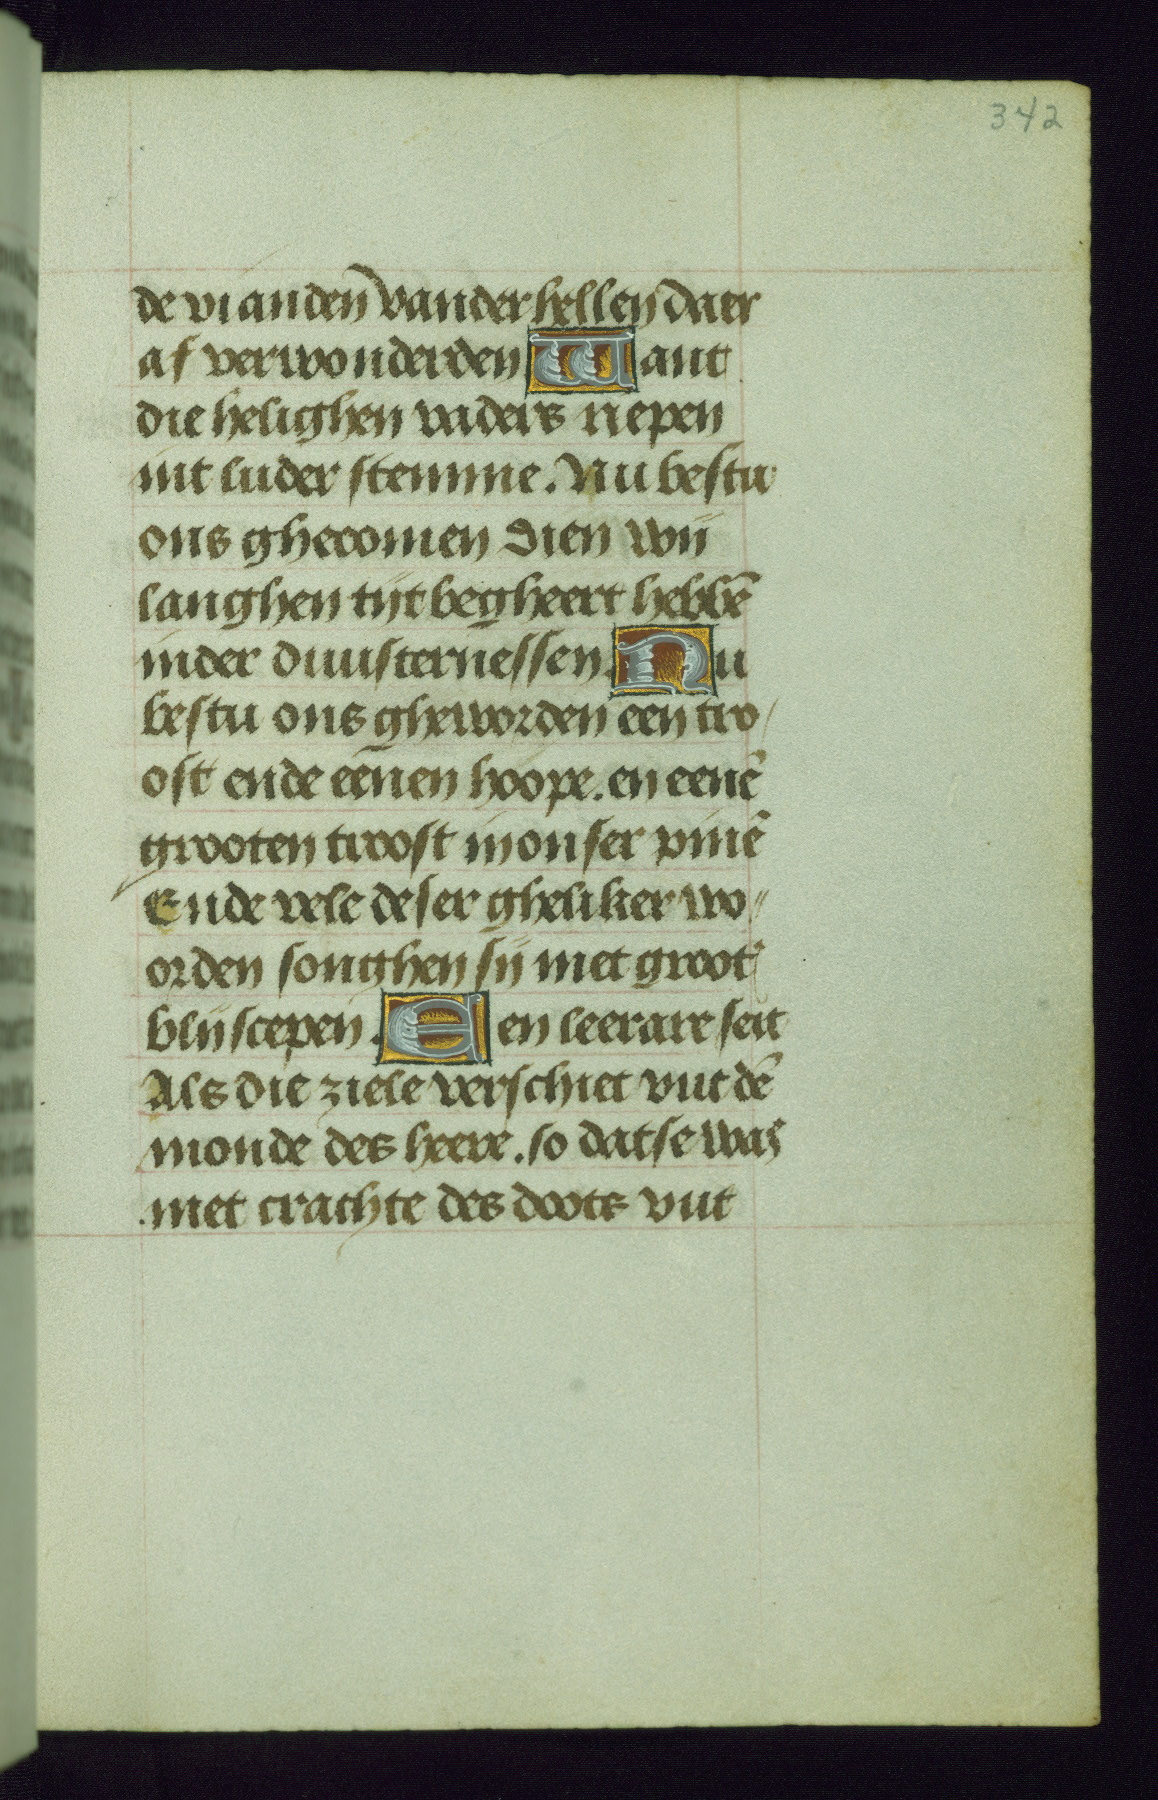 342
de vianden vander hellen daer
af verwonderden Want
die helighen vaders riepen
mit luder stemme. Nu bestu
ons ghecomen dien wij
langhen tijt begheert hebbē
inder duusternessen. Nu
bestu ons gheworden een tro/
ost ende eenen hoope. en eenē
grooten troost in onser pinē
Ende vele deser gheliker wo//
orden songhen sij met groot̄
blijscepen. Een leerare seit
Als die ziele verschiet uut dē
monde des heere. so datse was
met crachte des doots uut